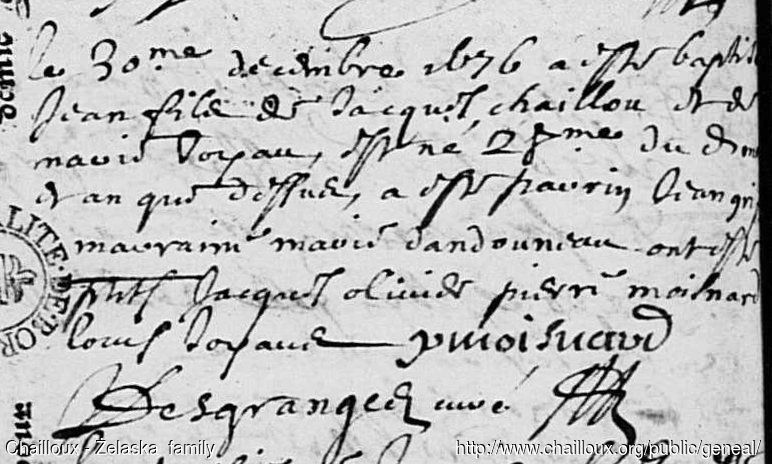 le 30me decembre 1676 a esté baptisé
Jean fils de Jacques chaillou et de
marie Joyau, est né 28me du d mois
et an que dessus, a esté parrin Jean
marraine marie dandonneau ont esté
Jacques olivier pierre moisnard
louis Joyaus pmoisnard
Desgranges curé
Chailloux - Zelaska family http://www.chailloux.org/public/geneal/
LITE·DE·BOR